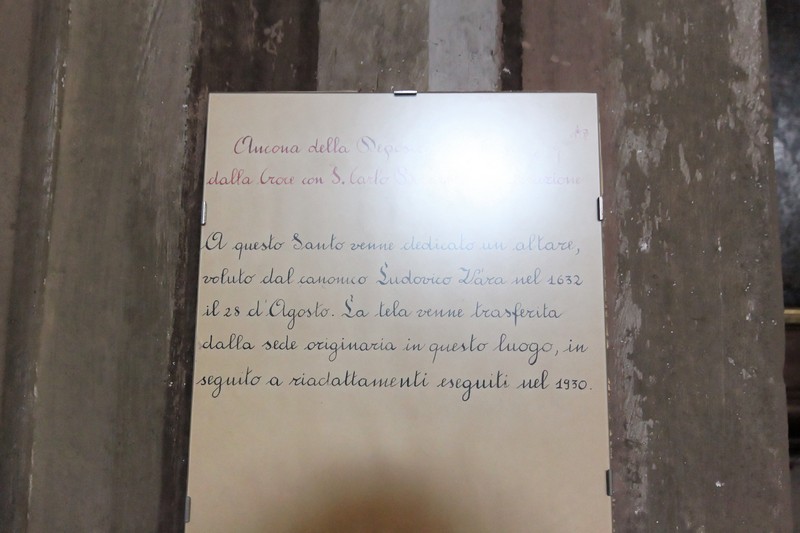 Ancona della
dalla Croce con S. Carlo
A questo Santo venne dedicato un altare,
voluto dal canonico Ludovico Vara nel 1632
il 28 d'Agosto. La tela venne trasferita
dalla sede originaria in questo luogo, in
seguito a riadattamenti eseguiti nel 1930.